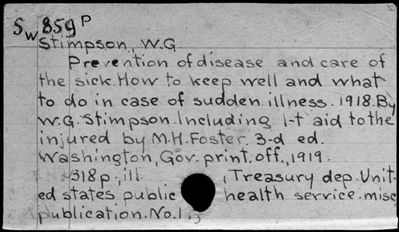 Sw859P
Stimpson, W.G.
Prevention of disease and care of
the sick. How to keep well and what
to do in case of sudden illness. 1918. By
W.G. Stimpson. Including 1-t aid to the
injured by M.H. Foster. 3-d ed.
Washington, Gov. print. off., 1919.
318 p., ill. , Treasury dep. Unit-
ed states public health service. misc
publication. No. 17